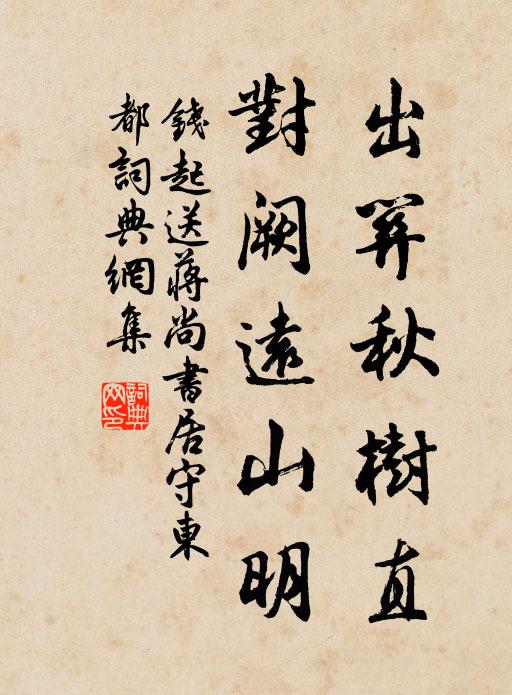 出關秋樹直
對闕遠山明
錢起送蔣尚書居守東
都詞典網集
詞典網印